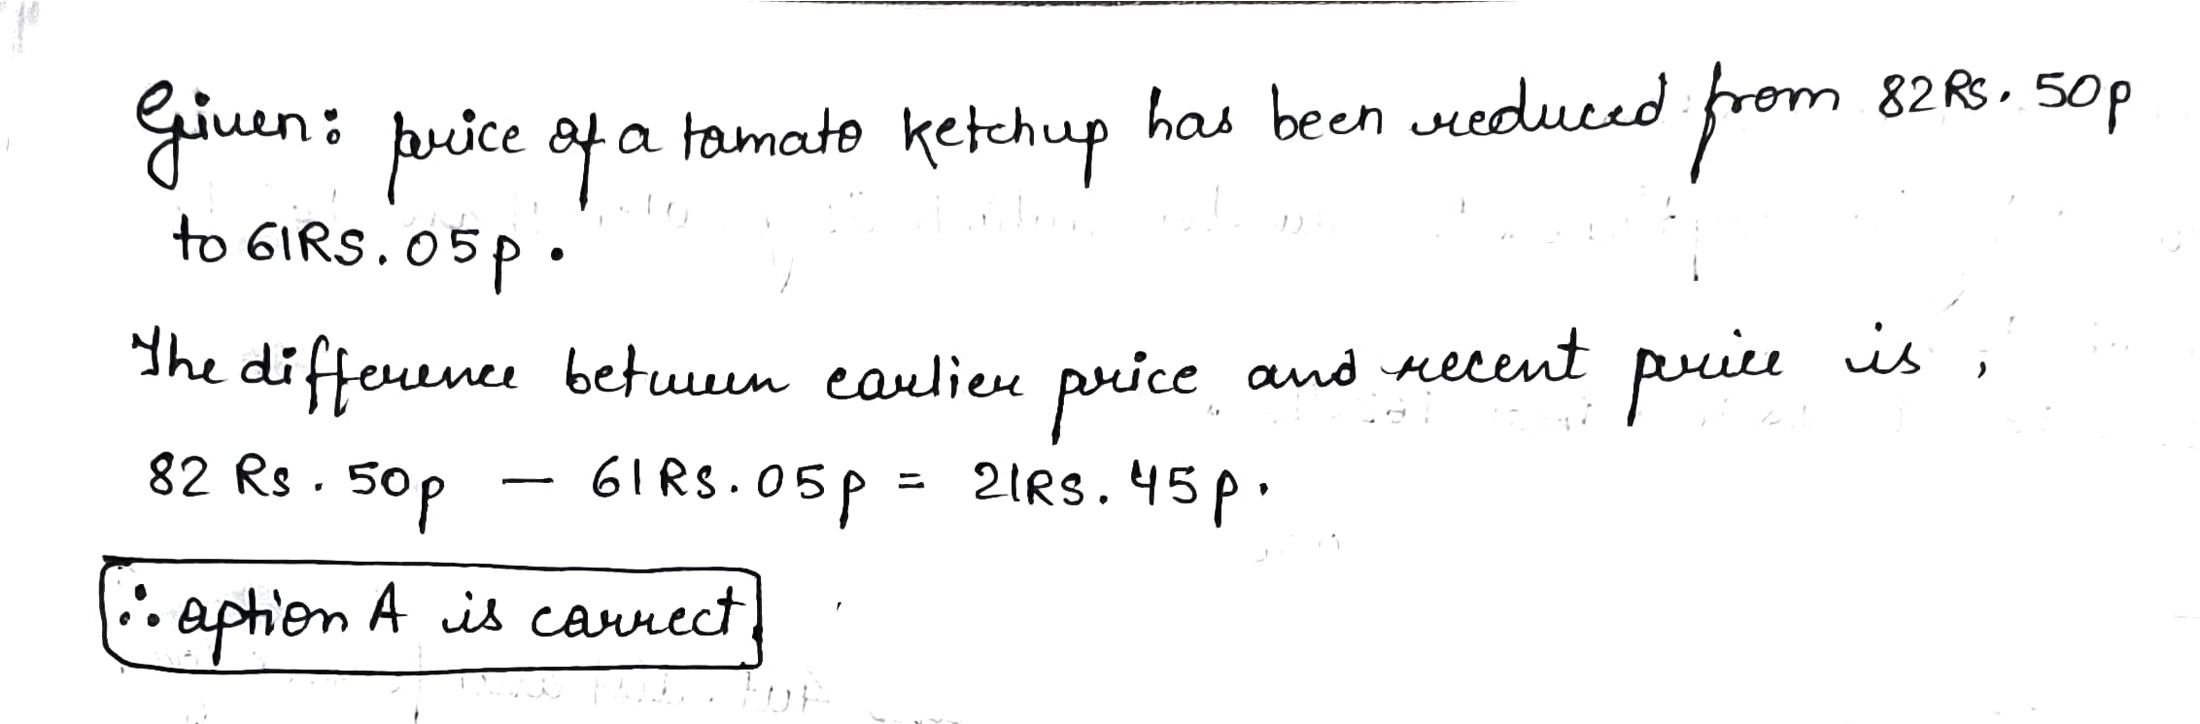 Given: price of a tamato ketchup has been reduced from 82Rs. 50p
to 61RS. 05p.
The difference between earlier price and recent price is,
82 Rs. 50p - 61RS. 05p = 21RS. 45p.
∴ aption A is carrect